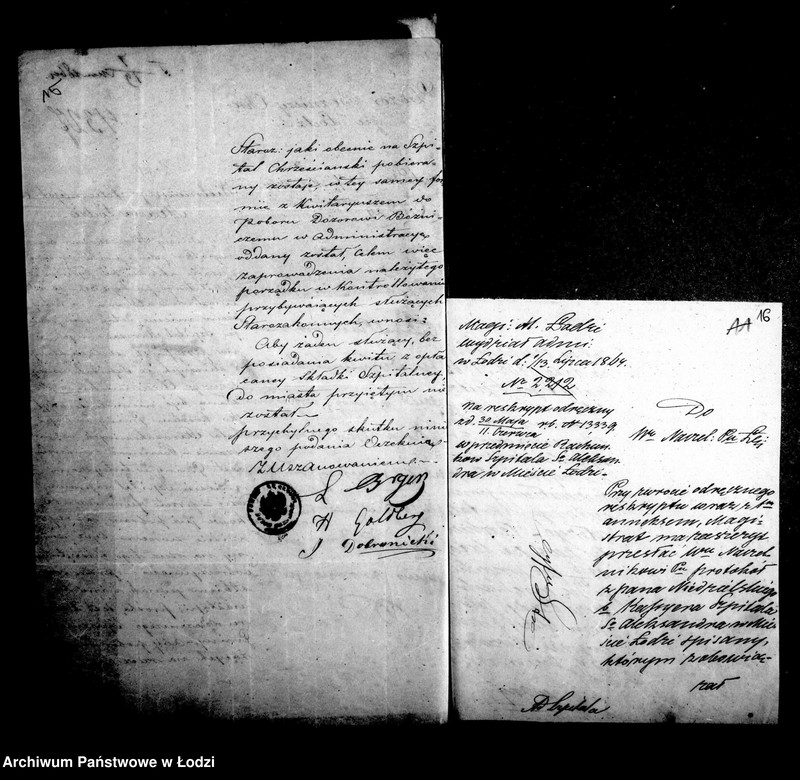 15
Staroz: jaki obecnie na Szpi-
tal Chrześcianski pobiera-
ny zostaje, w tey samey for
mie z Kwitaryuszem do
poboru Dozorowi Bóżni-
czemu w administracyę
oddany został, celem więc
zaprowadzenia należytego
porządku w Kontrollowaniu
przybywaiących służących
Starozakonnych, wnosi:
Aby żaden służący, bez
posiadania kwitu z opła
caney Składki Szpitalney,
do miasta przyiętym nie
został
przychylnego skutku nini
szego podania Oczekuie
z Uszanowaniem
L
H Goldberg
J Dobronicki
16
Magi: M. Łodzi
wydział admi:
w Łodzi d. 1/13 Lipca 1864.
No 2212
Na reskrypt odręczny
z d. 30 Maja / 11 Czerwca rb. No 13339
w przedmiocie Rachun
ków Szpitala Sgo Aleksan
dra w Mieście Łodzi.
Do
Wo Naczel: Ptu
Przy zwrocie odręcznego
reskryptu wraz z
anneksem, Magi-
strat ma zaszczyt
przesłać Wmu Naczel-
nikowi Ptu protokół
z pana Niedzielskiego
b. Kassyera Szpitala
Sgo Aleksandra w Mie
ście Łodzi spisany,
którym zobowią-
zał
Ad Szpitala
Archiwum Państwowe w Łodzi